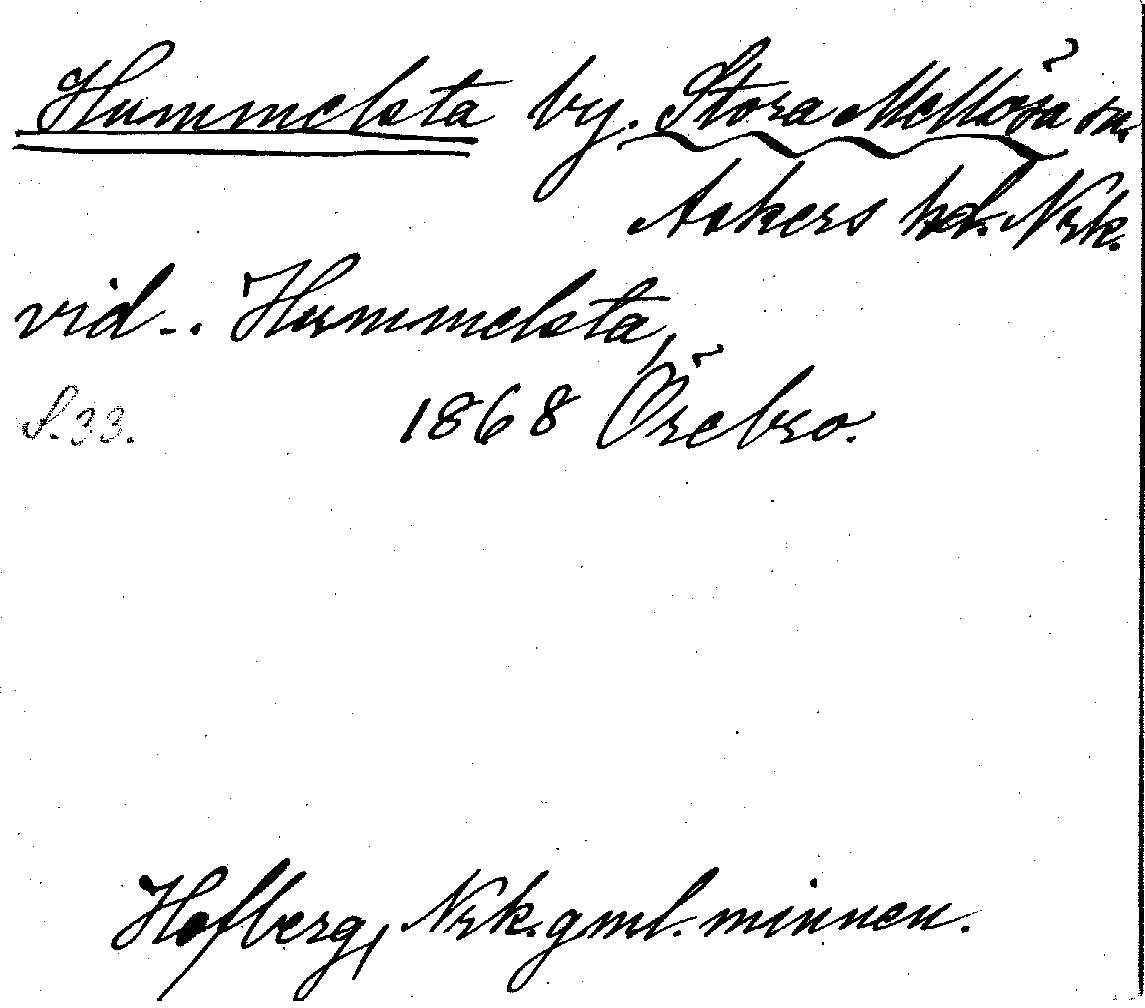 Hummelsta by. Stora Mellösa sn.
Askers hd. Nrk.
vid -. Hummelsta,
S. 33. 1868 Örebro.
Hofberg, Nrk. gml. minnen.